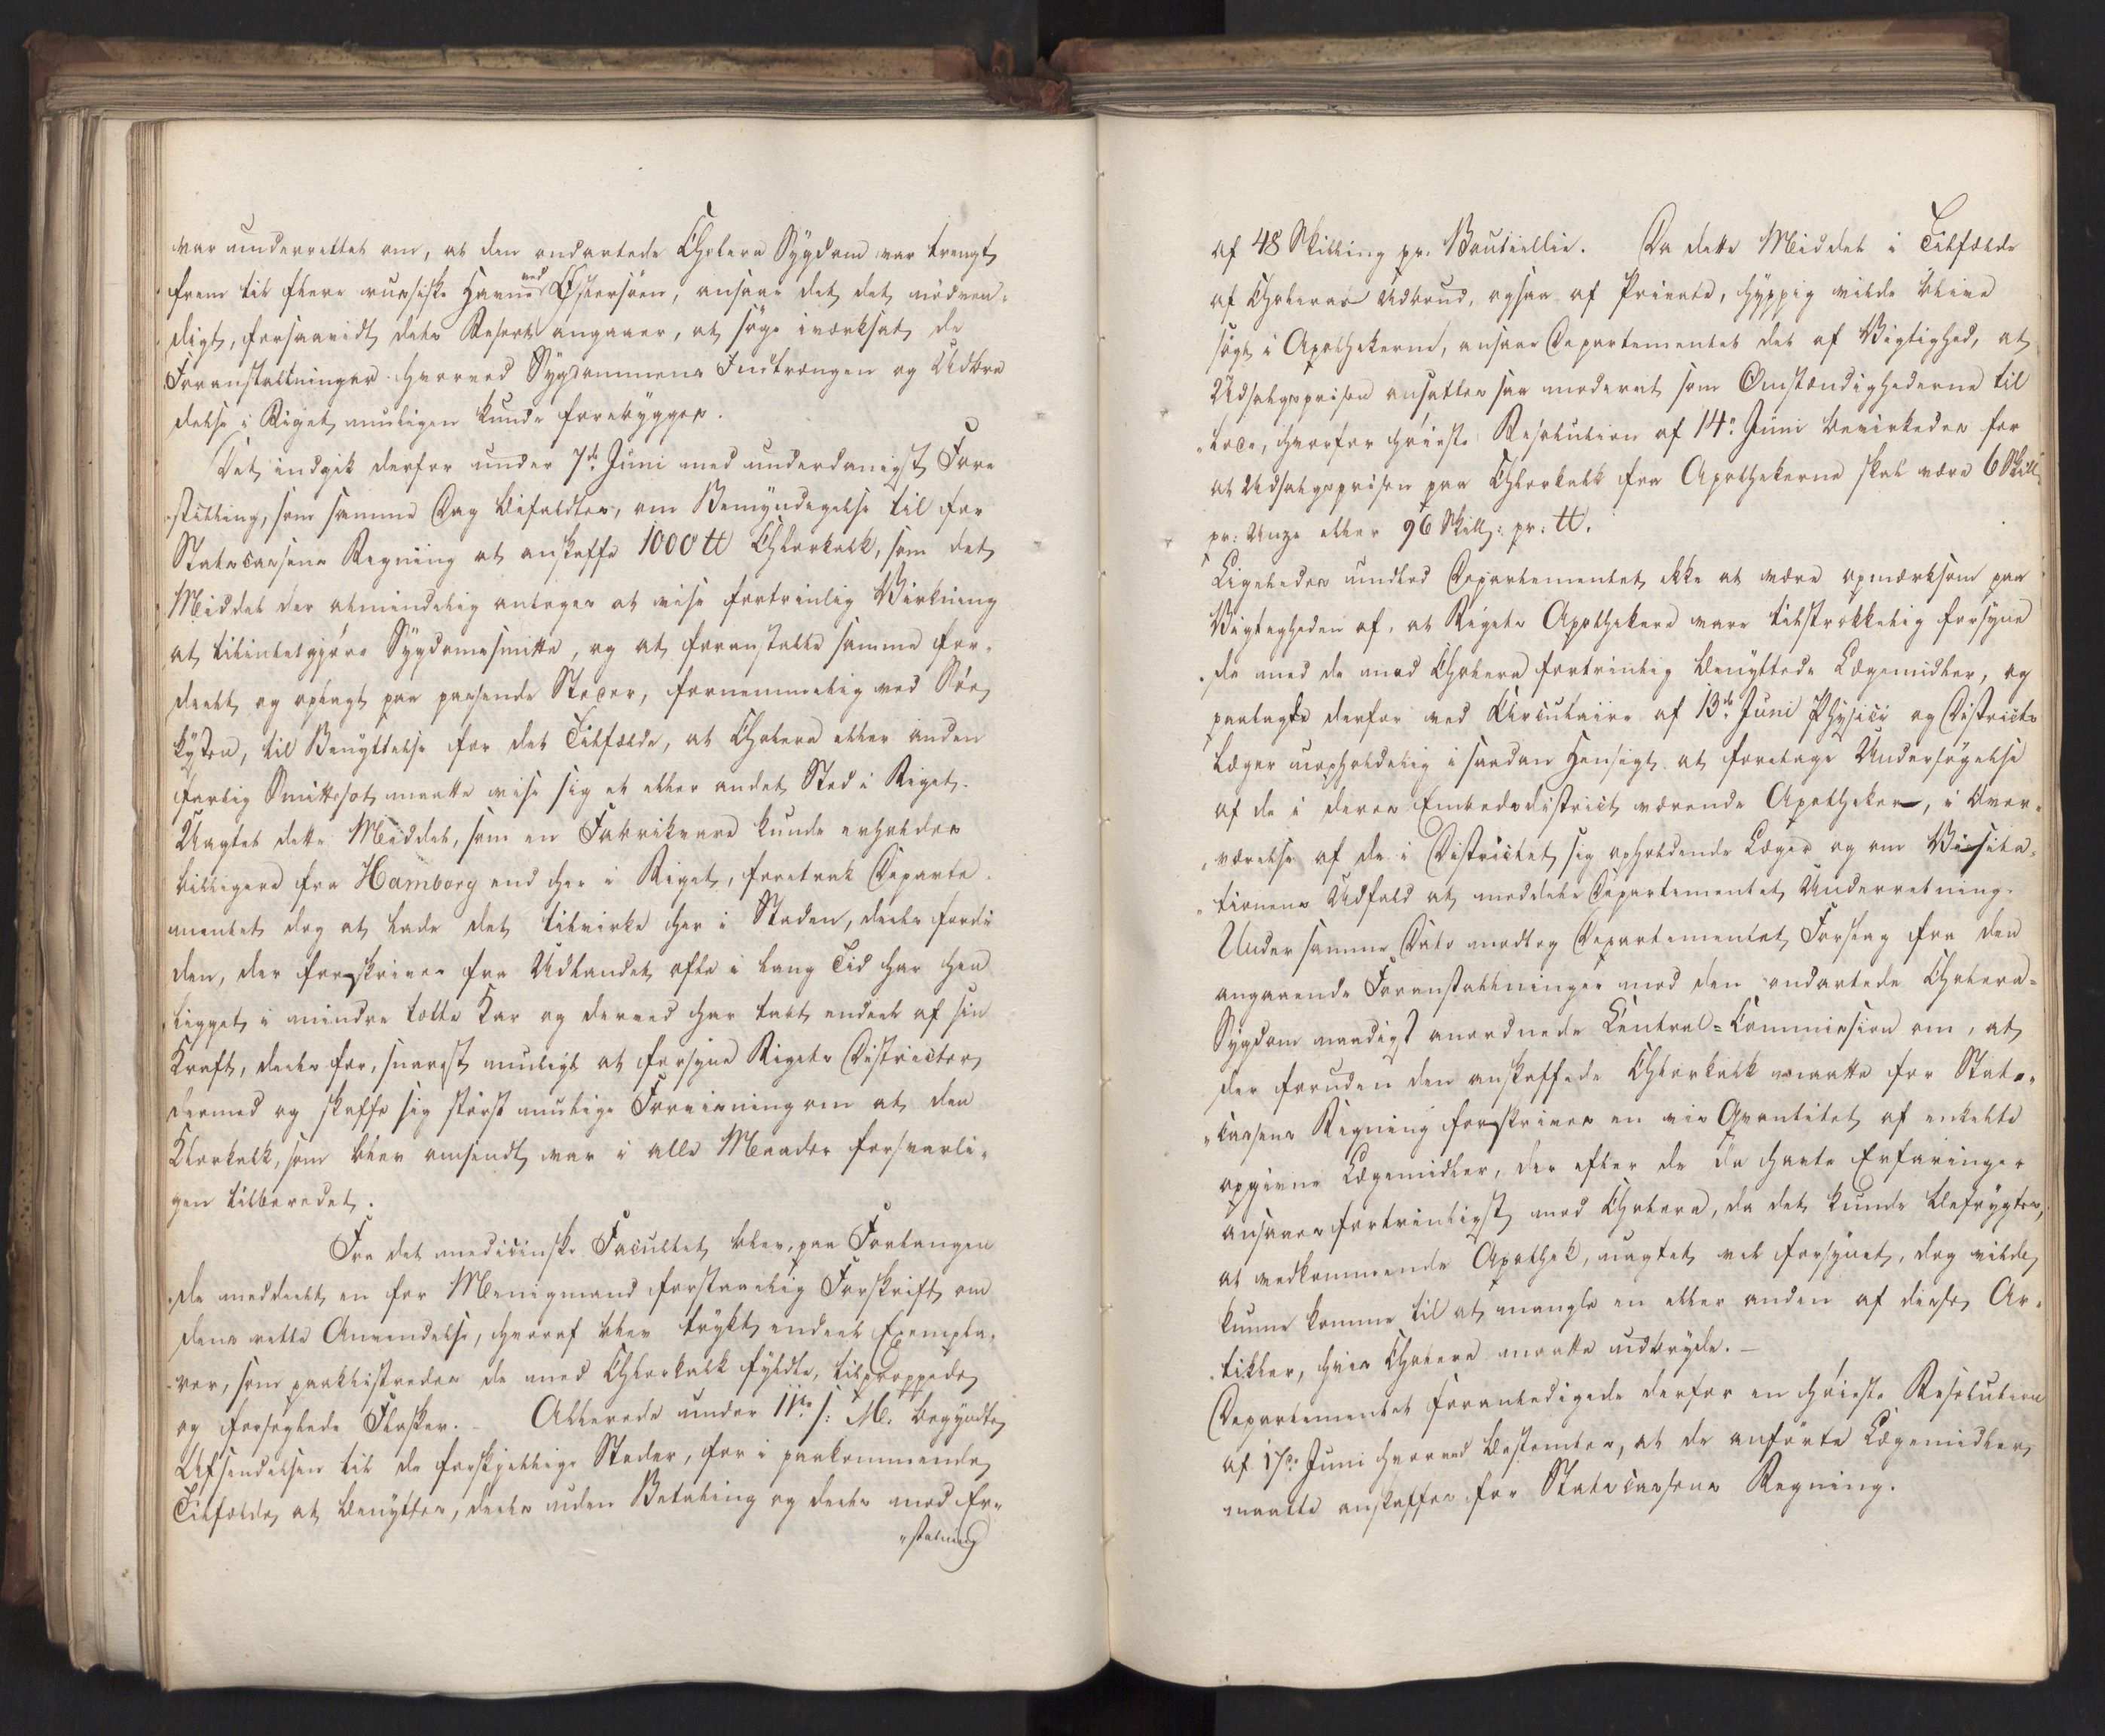 var underrettet om, at den ondartede Cholera Sygdom var trengt
frem til flere russiske Havne ved Østersøen, ansaae det det nödven-
digt, forsaavidt dets Resort angaaer, at söge iverksat de
Foranstaltninger hvorved Sygdommens Indtrængen og Udbre
delse i Riget muligen kunde forebygges.
Det indgik derfor under 7de Juni med underdanigst Fore
stilling, som samme Dag bifaldtes, om Bemyndigelse til for
Statscassens Regning at anskaffe 1000 ℔ Chlorkalk, som det
Middel der almindelig antoges at vise fortrinlig Virkning
at tilintetgjöre Sygdomssmitte, og at foranstalte samme for-
deelt og oplagt paa passende Steder, fornemmelig ved Söe
kysten, til Benyttelse for det Tilfælde, at Cholera eller anden
farlig Smittesot maatte vise sig et eller andet Sted i Riget.
Uagtet dette Middel, som en Fabrikvare kunde erholdes
billigere fra Hamborg end her i Riget, foretrak Departe-
mentet dog at lade det tilvirke her i Staden, deels fordi
den, der forskrives fra Udlandet ofte i lang Tid har hen
ligget i mindre tætte Kar og derved har tabt endeel af sin
Kraft, deels for, snarest muligt at forsyne Rigets Districter
dermed og skaffe sig störst mulige Forvisning om at den
Klorkalk, som blev omsendt var i alle Maader forsvarli-
gen tilberedet.
Fra det medicinske Facultet blev, paa Forlangen
de meddeelt en for Menigmand forstaaelig Forskrift om
dens rette Anvendelse, hvoraf blev trykt endeel Exempla-
rer, som paaklistredes de med Chlorkalk fyldte, tilproppede
og forseglede Flasker. - Allerede under 11te s: M: begyndte
Afsendelsen til de forskjellige Steder, for i paakommende
Tilfælde at benyttes, deels uden Betaling og deels mod Er-
statning
af 48 Skilling pr. Bouteillie. Da dette Middel i Tilfælde
af Choleras Udbrud, ogsaa af Private, hyppig vilde blive
sögt i Apothekerne, ansaae Departementet det af Vigtighed, at
Udsalgsprisen ansattes saa moderat som Omstændighederne til
lode, hvorfor höieste Resolution af 14de Juni bevirkedes for
at Udsalgsprisen paa Chlorkalk fra Apothekerne skal være 6 Skill
pr: Unze eller 96 Skill: pr: ℔.
Ligeledes undlod Departementet ikke at være opmærksom paa
Vigtigheden af, at Rigets Apothekere vare tilstrækkelig forsyne
de med de mod Cholera fortrinlig benyttede Lægemidler, og
paalagde derfor ved Circulaire af 13de Juni Physici og Districts
læger uopholdelig i saadan Hensigt at foretage Undersögelse
af de i deres Embedsdistrict værende Apotheker, i Over-
værelse af de i Districtet sig opholdende Læger og om Visita-
tionens Udfald at meddele Departementet Underretning.
Under samme Dato modtog Departementet Forslag fra den
angaaende Foranstaltninger mod den ondartede Cholera-
Sygdom naadigst anordnede Central-Commission om, at
der foruden den anskaffede Chlorkalk maatte for Stats-
cassens Regning forskrives en vis Qvantitet af enkelte
opgivne Lægemidler, der efter de da havte Erfaringer
ansaaes fortrinligst mod Cholera, da det kunde befrygtes,
at vedkommende Apothek, uagtet vel forsynet, dog vilde
kunne komme til at mangle en eller anden af disse Ar-
tikler, hvis Cholera maatte udbryde. -
Departementet foranledigede derfor en höieste Resolution
af 17de Juni hvorved bestemtes, at de anförte Lægemidler
maatte anskaffes for Statscassens Regning.